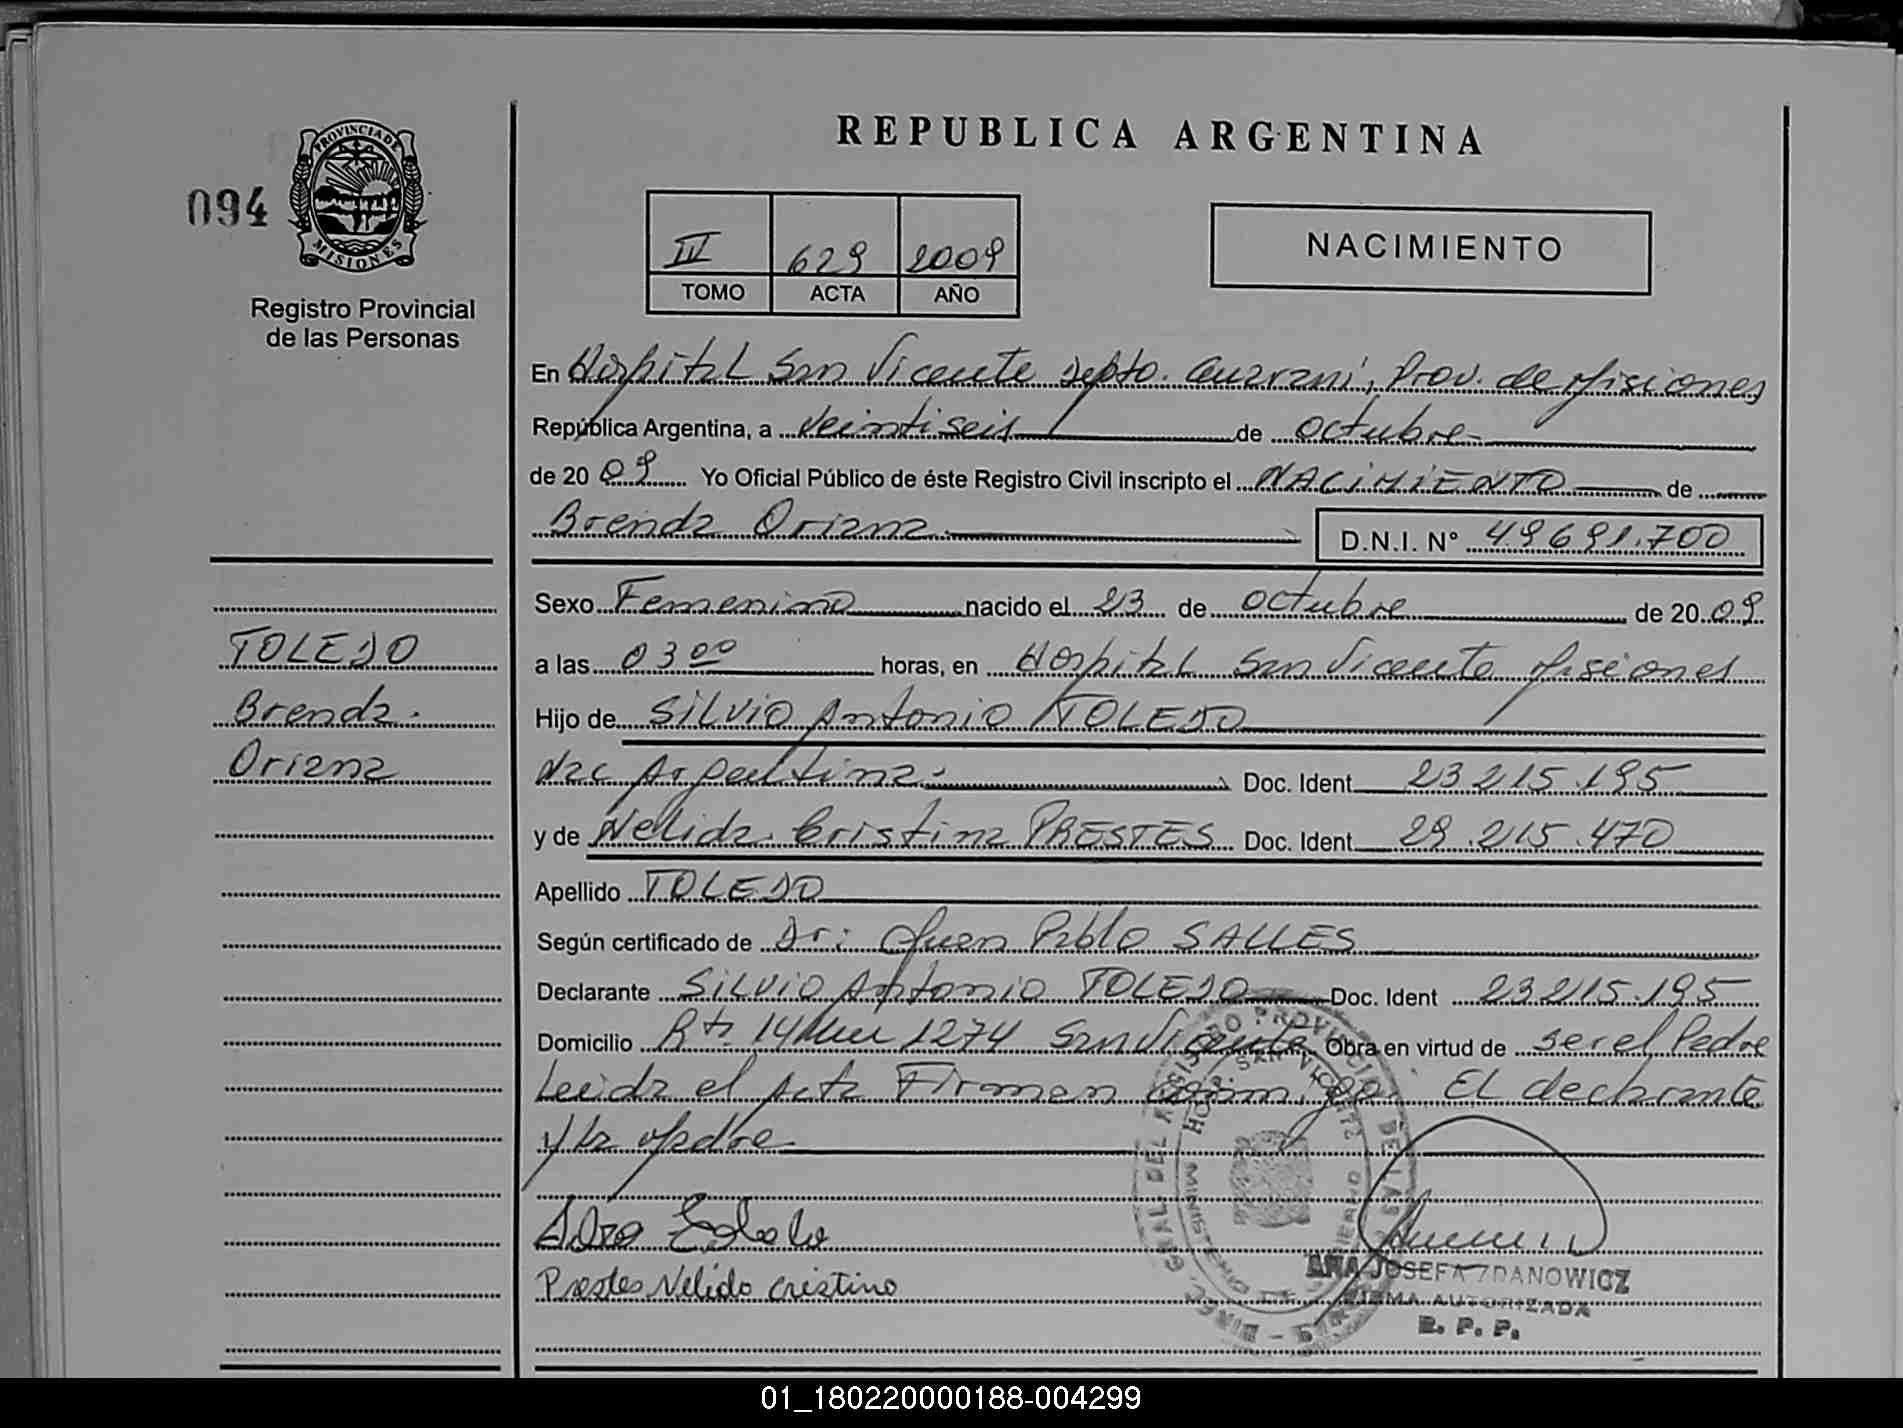 REPUBLICA ARGENTINA
094
PROVINCIA DE
MISIONES
Registro Provincial
de las Personas
IV 629 2009
TOMO ACTA AÑO
NACIMIENTO
En Hospital San Vicente Depto. Guarani, Prov. de Misiones
República Argentina, a veintiseis de octubre
de 20 09 Yo Oficial Público de éste Registro Civil inscripto el NACIMIENTO de
Brenda Oriana D.N.I. Nº 49691.700
Sexo Femenino nacido el 23 de octubre de 20 09
a las 03 00 horas, en Hospital San Vicente Misiones
Hijo de SILVIO Antonio TOLEDO
Nac Argentina. Doc. Ident 23 215.195
y de Nelida Cristina PRESTES Doc. Ident 29.215.470
Apellido TOLEDO
Según certificado de Dr: Juan Pablo SALLES
Declarante SILVIO Antonio TOLEDO Doc. Ident 23215.195
Domicilio Rta 14 km 1274 San Vicente Obra en virtud de ser el Padre
Leida el Acta Firman conmigo El declarante
y la Madre
TOLEDO
Brenda
Oriana
Prestes Nelida cristina
ANA JOSEFA ZDANOWICZ
FIRMA AUTORIZADA
R. P. P.
01_180220000188-004299